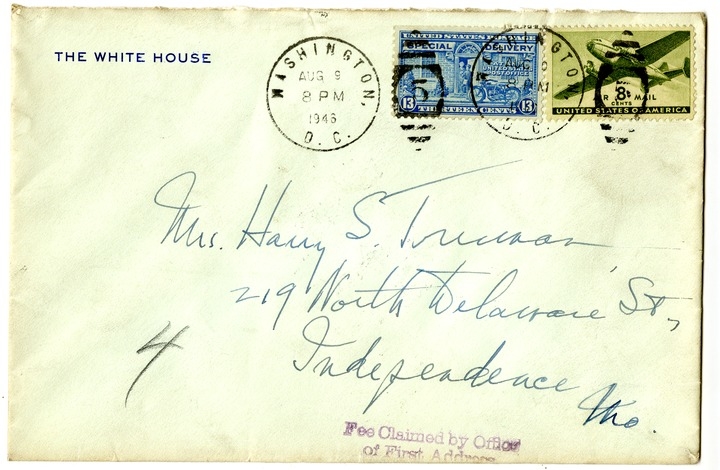 THE WHITE HOUSE
WASHINGTON,
AUG 9
8 PM
1946
D. C.
UNITED STATES POSTAGE
SPECIAL DELIVERY
UNITED STATES
POST OFFICE
13 THIRTEEN CENTS 13
5
WASHINGTON
AUG 9
8 PM
D. C.
8¢
CENTS
AIR MAIL
UNITED STATES OF AMERICA
Mrs. Harry S. Truman
219 North Delaware St,
Independence
Mo.
4
Fee Claimed by Office
of First Address